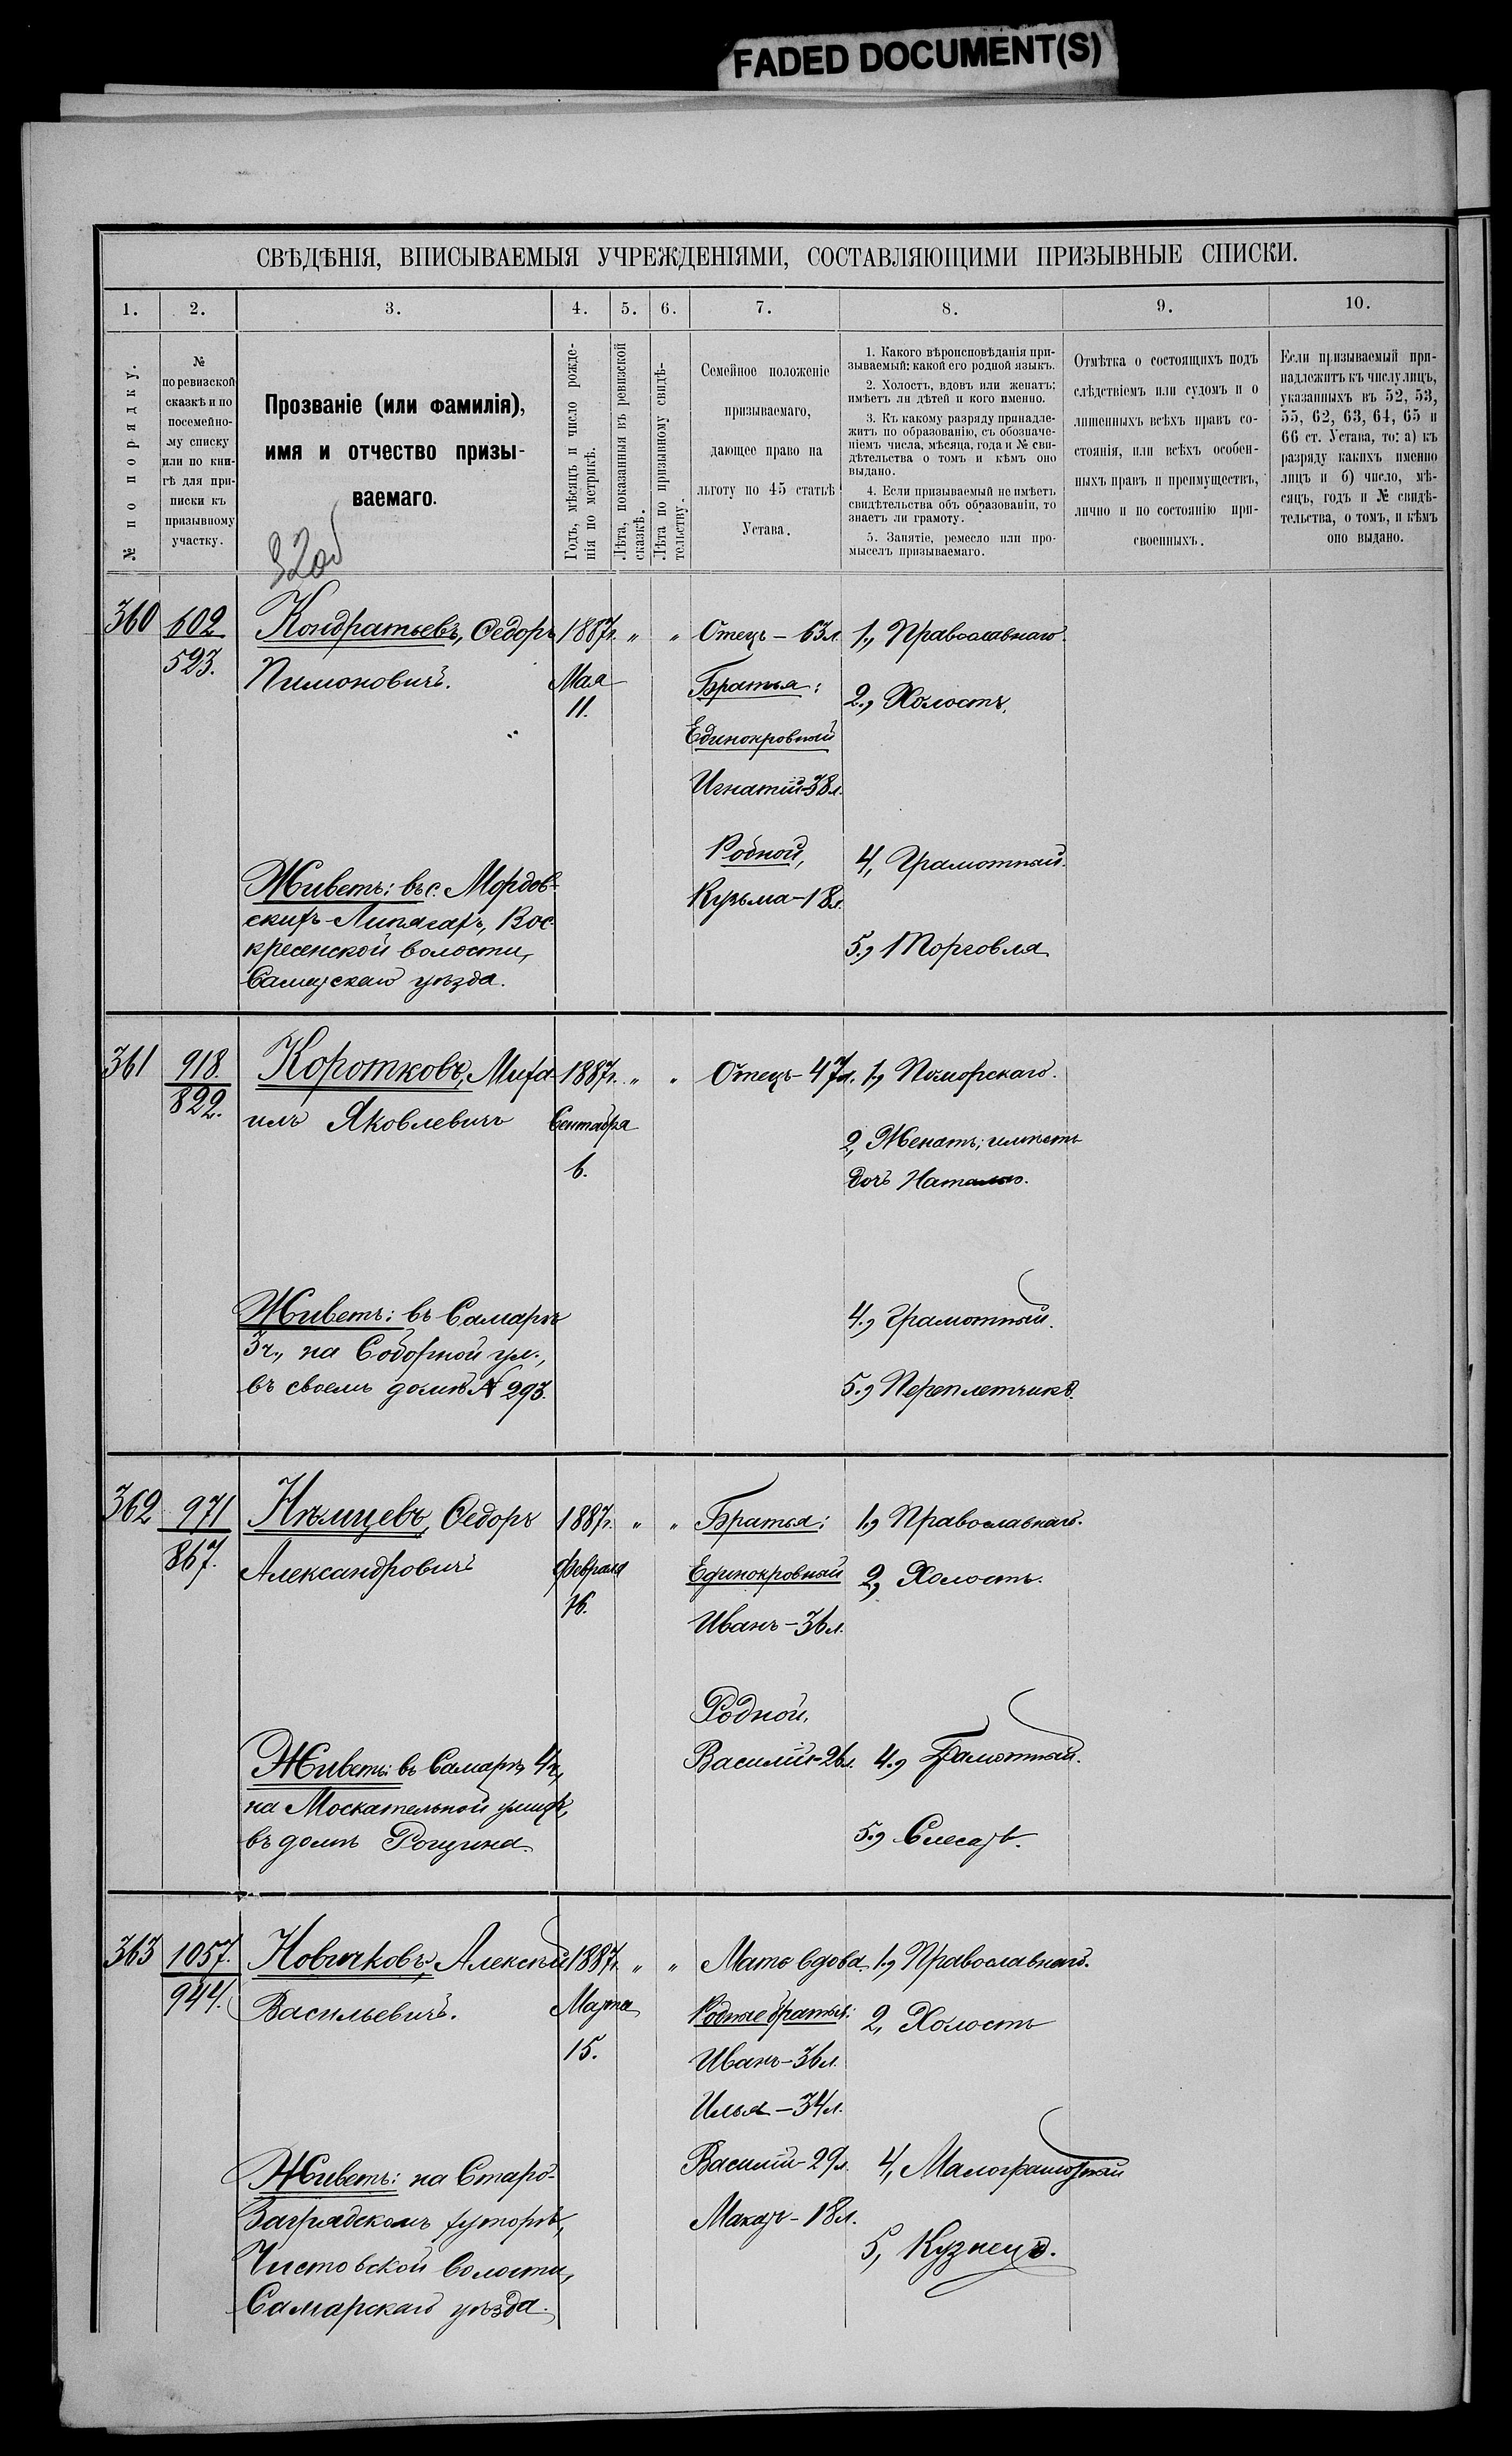 FADED DOCUMENT(S)
СВѢДѢНІЯ, ВПИСЫВАЕМЫЯ УЧРЕЖДЕНІЯМИ, СОСТАВЛЯЮЩИМИ ПРИЗЫВНЫЕ СПИСКИ.
1. 2. 3. 4. 5. 6. 7. 8. 9. 10.
№ по порядку.
№
по ревизской
сказкѣ и по
посемейно-
му списку
или по кни-
гѣ для при-
писки къ
призывному
участку.
Прозваніе (или фамилія),
имя и отчество призы-
ваемаго.
Годъ, мѣсяцъ и число рожде-
нія по метрикѣ.
Лѣта, показанныя въ ревизской
сказкѣ.
Лѣта по призывному свидѣ-
тельству.
Семейное положеніе
призываемаго,
дающее право на
льготу по 45 статьѣ
Устава.
1. Какого вѣроисповѣданія при-
зываемый; какой его родной языкъ.
2. Холостъ, вдовъ или женатъ;
имѣетъ ли дѣтей и кого именно.
3. Къ какому разряду принадле-
житъ по образованію, съ обозначе-
ніемъ числа, мѣсяца, года и № сви-
дѣтельства о томъ и кѣмъ оно
выдано.
4. Если призываемый не имѣетъ
свидѣтельства объ образованіи, то
знаетъ ли грамоту.
5. Занятіе, ремесло или про-
мыселъ призываемаго.
Отмѣтка о состоящихъ подъ
слѣдствіемъ или судомъ и о
лишенныхъ всѣхъ правъ со-
стоянія, или всѣхъ особен-
ныхъ правъ и преимуществъ,
лично и по состоянію при-
своенныхъ.
Если призываемый при-
надлежитъ къ числу лицъ,
указанныхъ въ 52, 53,
55, 62, 63, 64, 65 и
66 ст. Устава, то: а) къ
разряду какихъ именно
лицъ и б) число, мѣ-
сяцъ, годъ и № свидѣ-
тельства, о томъ, и кѣмъ
оно выдано.
360
602
523.
Кондратьевъ, Ѳедоръ
Пимоновичъ.
1887г.
Мая
11.
" "
Отецъ - 63л.
Братья:
Единокровный
Игнатій-38л.
Родной,
Кузьма-18л.
1., Православнаго.
2., Холостъ.
4, Грамотный.
5., Торговля
Живетъ: въ с. Мордов-
скихъ-Липягахъ, Вос-
кресенской волости,
Самарскаго уѣзда.
361
918.
822.
Коротковъ, Миха-
илъ Яковлевичъ
1887г.
Сентября
6.
" "
Отецъ-47л.
1, Поморскаго.
2, Женатъ; имѣетъ
дочь Наталью.
4., Грамотный.
5., Переплетчикъ.
Живетъ: въ Самарѣ
3ч., на Соборной ул.,
въ своемъ домѣ № 293.
362
971
867.
Нѣмцевъ, Ѳедоръ
Александровичъ
1887г.
Февраля
16.
" "
Братья:
Единокровный
Иванъ-36л.
Родной,
Василій-26л.
1., Православнаго.
2, Холостъ.
4., Грамотный.
5., Слесарь.
Живетъ: въ Самарѣ 4ч,
на Москательной улицѣ,
въ домѣ Рощина.
363
1057.
944.
Новичковъ, Алексѣй
Васильевичъ.
1887г.
Марта
15.
" "
Мать вдова.
Родные братья:
Иванъ-36л.
Илья-34л.
Василій-29л.
Макаръ-18л.
1., Православнаго.
2, Холостъ
4, Малограмотный
5, Кузнецъ.
Живетъ: на Старо-
хуторѣ,
волости,
Самарскаго уѣзда.